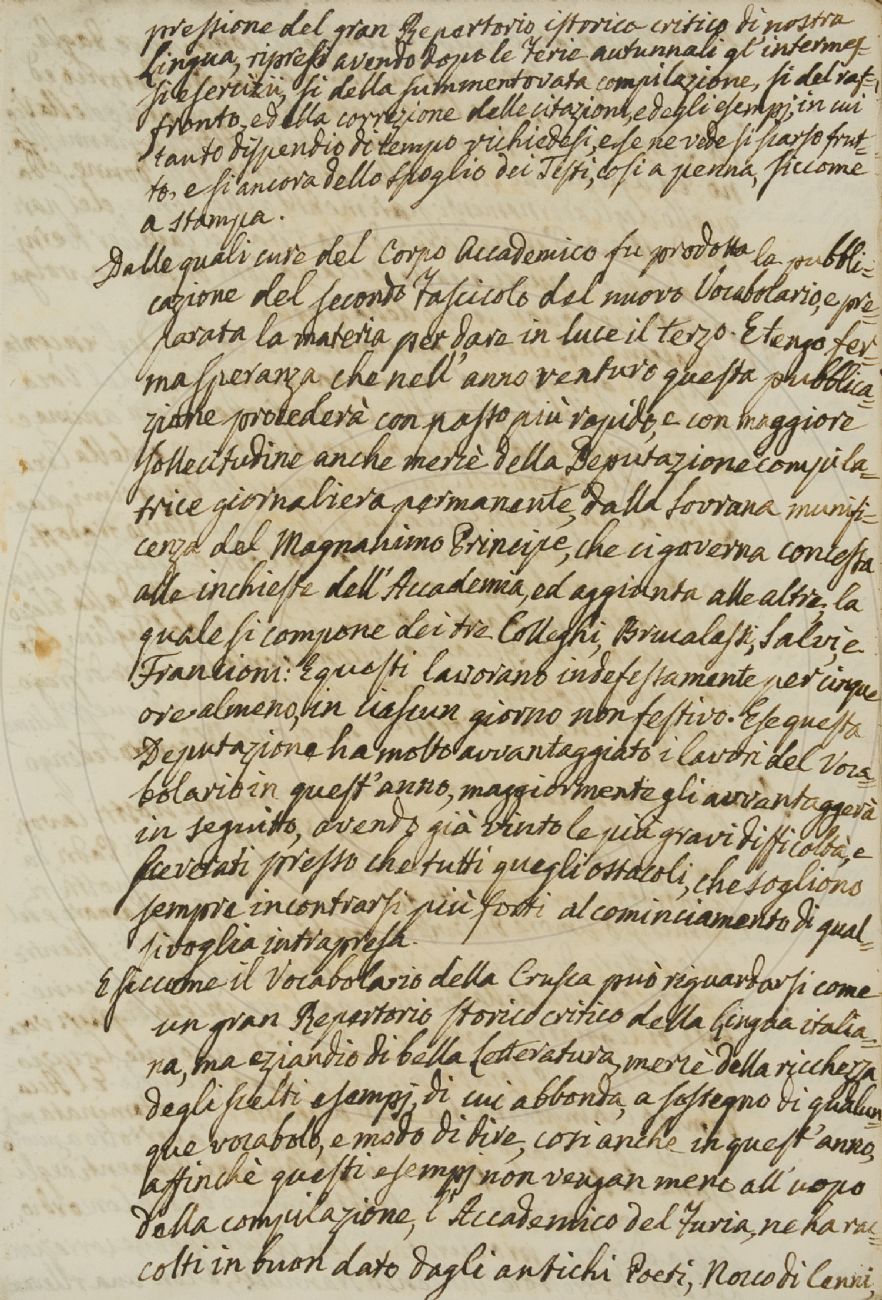 pressione del gran Repertorio istorico critico di nostra
Lingua, ripresi avendo dopo le Ferie autunnali gl'intermes=
si esercizii, si della summentovata compilazione, si del raf=
fronto, e della correzione delle citazioni, e degli esempj, in cui
tanto dispendio di tempo richiedesi, e se ne vede si scarso frut=
to, e si ancora dello spoglio dei Testi, così a penna, siccome
a stampa.
Dalle quali cure del Corpo Accademico fu prodotta la pubbli=
cazione del secondo Fascicolo del nuovo Vocabolario, e pre=
parata la materia per dare in luce il terzo. E tengo fer=
ma speranza che nell'anno venturo questa pubblica=
zione procederà con passo più rapido, e con maggiore
sollecitudine anche mercè della Deputazione compila=
trice giornaliera permanente, dalla Sovrana munifi=
cenza del Magnanimo Principe, che ci governa concessa
alle inchieste dell'Accademia, ed aggiunta alle altre, la
quale si compone dei tre Colleghi, Brucalassi, Salvi, e
Francioni: E questi lavorano indefessamente per cinque
ore almeno, in ciascun giorno non festivo. E se questa
Deputazione ha molto avvantaggiato i lavori del Voca=
bolario in quest'anno, maggiormente gli avvantaggerà
in seguito, avendo già vinto le più gravi difficoltà, e
sceverati presso che tutti quegli ostacoli, che sogliono
sempre incontrarsi più forti al cominciamento di qual=
sivoglia intrapresa.
E siccome il Vocabolario della Crusca può riguardarsi come
un gran Repertorio storico critico della Lingua italia=
na, ma eziandio di bella Letteratura, mercè della ricchezza
degli scelti esempj, di cui abbonda, a sostegno di qualun=
que vocabolo, e modo di dire, così anche in quest'anno,
affinchè questi esempj non vengan meno all'uopo
della compilazione, l'Accademico Del Furia, ne ha rac=
colti in buon dato dagli antichi Poeti, Nocco di Cenni,